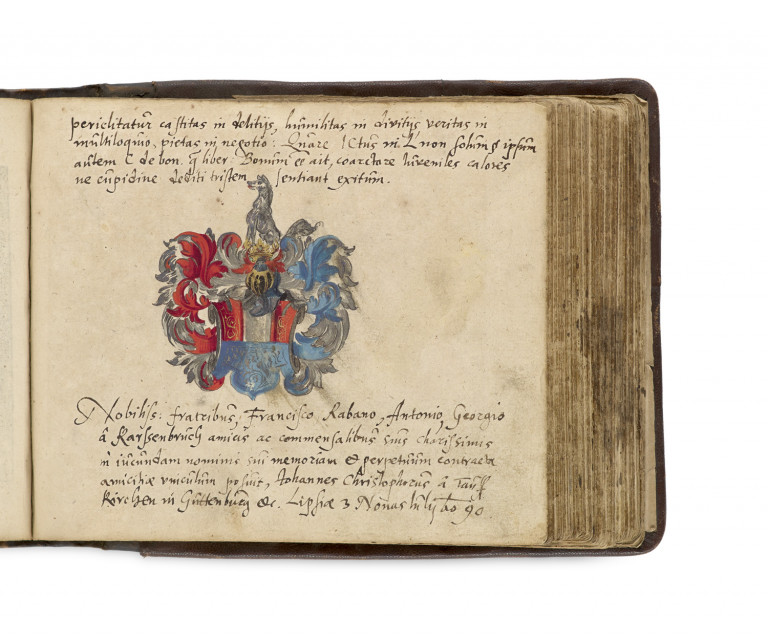 periclitatur castitas in delitijs, humilitas in divitijs veritas in
multiloquio, pietas in negotio: Quare ICtus in L non solum § ipsum
autem C de bon. q liber: Bonum ee ait, coarctare Iuveniles calores
ne cupidine dediti tristem sentiant exitum.
Nobiliss: fratribus, Francisco, Rabano, Antonio, Georgio
â Karssenbruch amicis ac commensalibus suis charissimis
in iucundam nominis sui memoriam & perpetuum contractæ
amicitiæ vinculum posuit, Johannes Christophorus â Tauff
Kirchen in Guttenburg &c. Lipsiæ 3 Nonas Iulij Ao 90